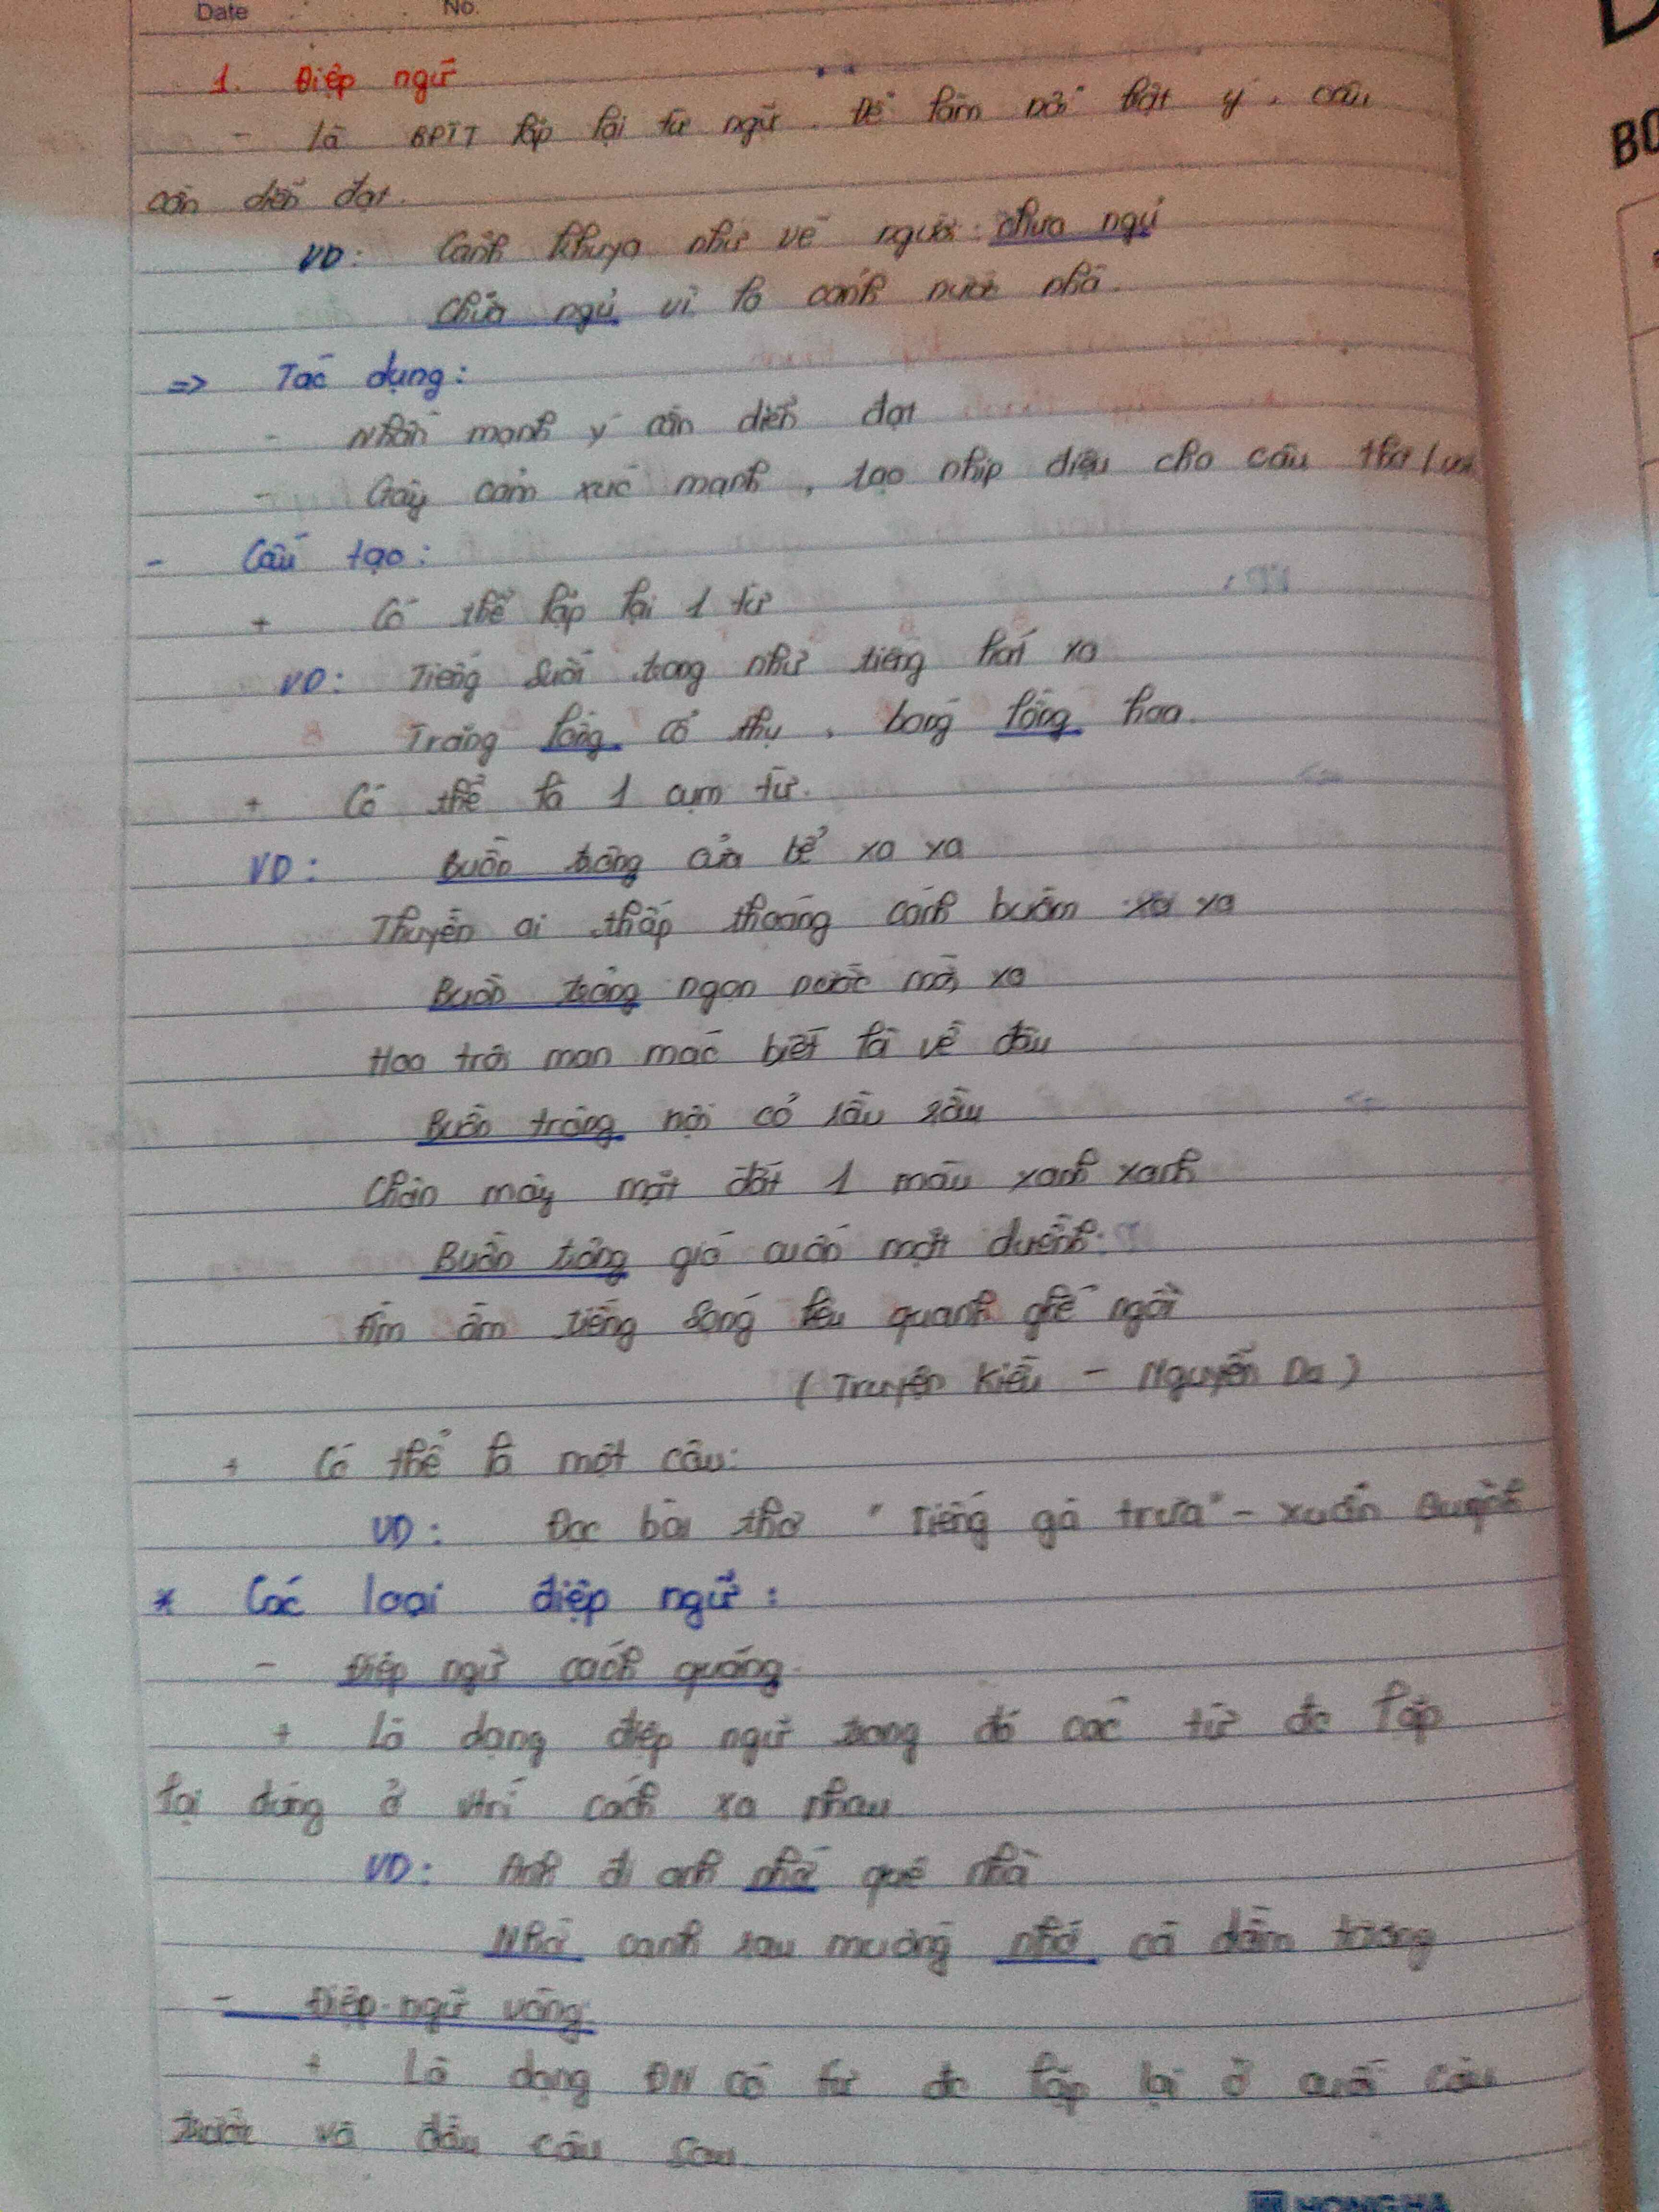 Date No.
1. Điệp ngữ
- là BPTT lặp lại từ ngữ. Để làm nổi bật ý, câu
cần diễn đạt.
VD: Cảnh khuya như vẽ người chưa ngủ
Chưa ngủ vì lo cảnh nước nhà.
=> Tác dụng:
- Nhấn mạnh ý cần diễn đạt
- Gây cảm xúc mạnh, tạo nhịp điệu cho câu thơ /
- Cấu tạo:
+ Có thể lặp lại 1 từ
VD: Tiếng suối trong như tiếng hát xa
Trăng lồng cổ thụ, bóng lồng hoa.
+ Có thể là 1 cụm từ.
VD: Buồn trông cửa bể xa xa
Thuyền ai thấp thoáng cánh buồm xa xa
Buồn trông ngọn nước mới xa
Hoa trôi man mác biết là về đâu
Buồn trông nội cỏ rầu rầu
Chân mây mặt đất 1 màu xanh xanh
Buồn trông gió cuốn mặt duềnh
ầm ầm tiếng sóng kêu quanh ghế ngồi
( Truyện Kiều - Nguyễn Du )
+ Có thể là một câu:
VD: Đọc bài thơ " Tiếng gà trưa" - Xuân Quỳnh
* Các loại điệp ngữ:
- Điệp ngữ cách quãng
+ Là dạng điệp ngữ trong đó các từ đc lặp
lại đứng ở vtrí cách xa nhau
VD: Anh đi anh nhớ quê nhà
Nhớ canh rau muống nhớ cà dầm tương
- Điệp ngữ vòng
+ Là dạng ĐN có từ đc lặp lại ở cuối câu
trước và đầu câu sau
BO
HONG HA